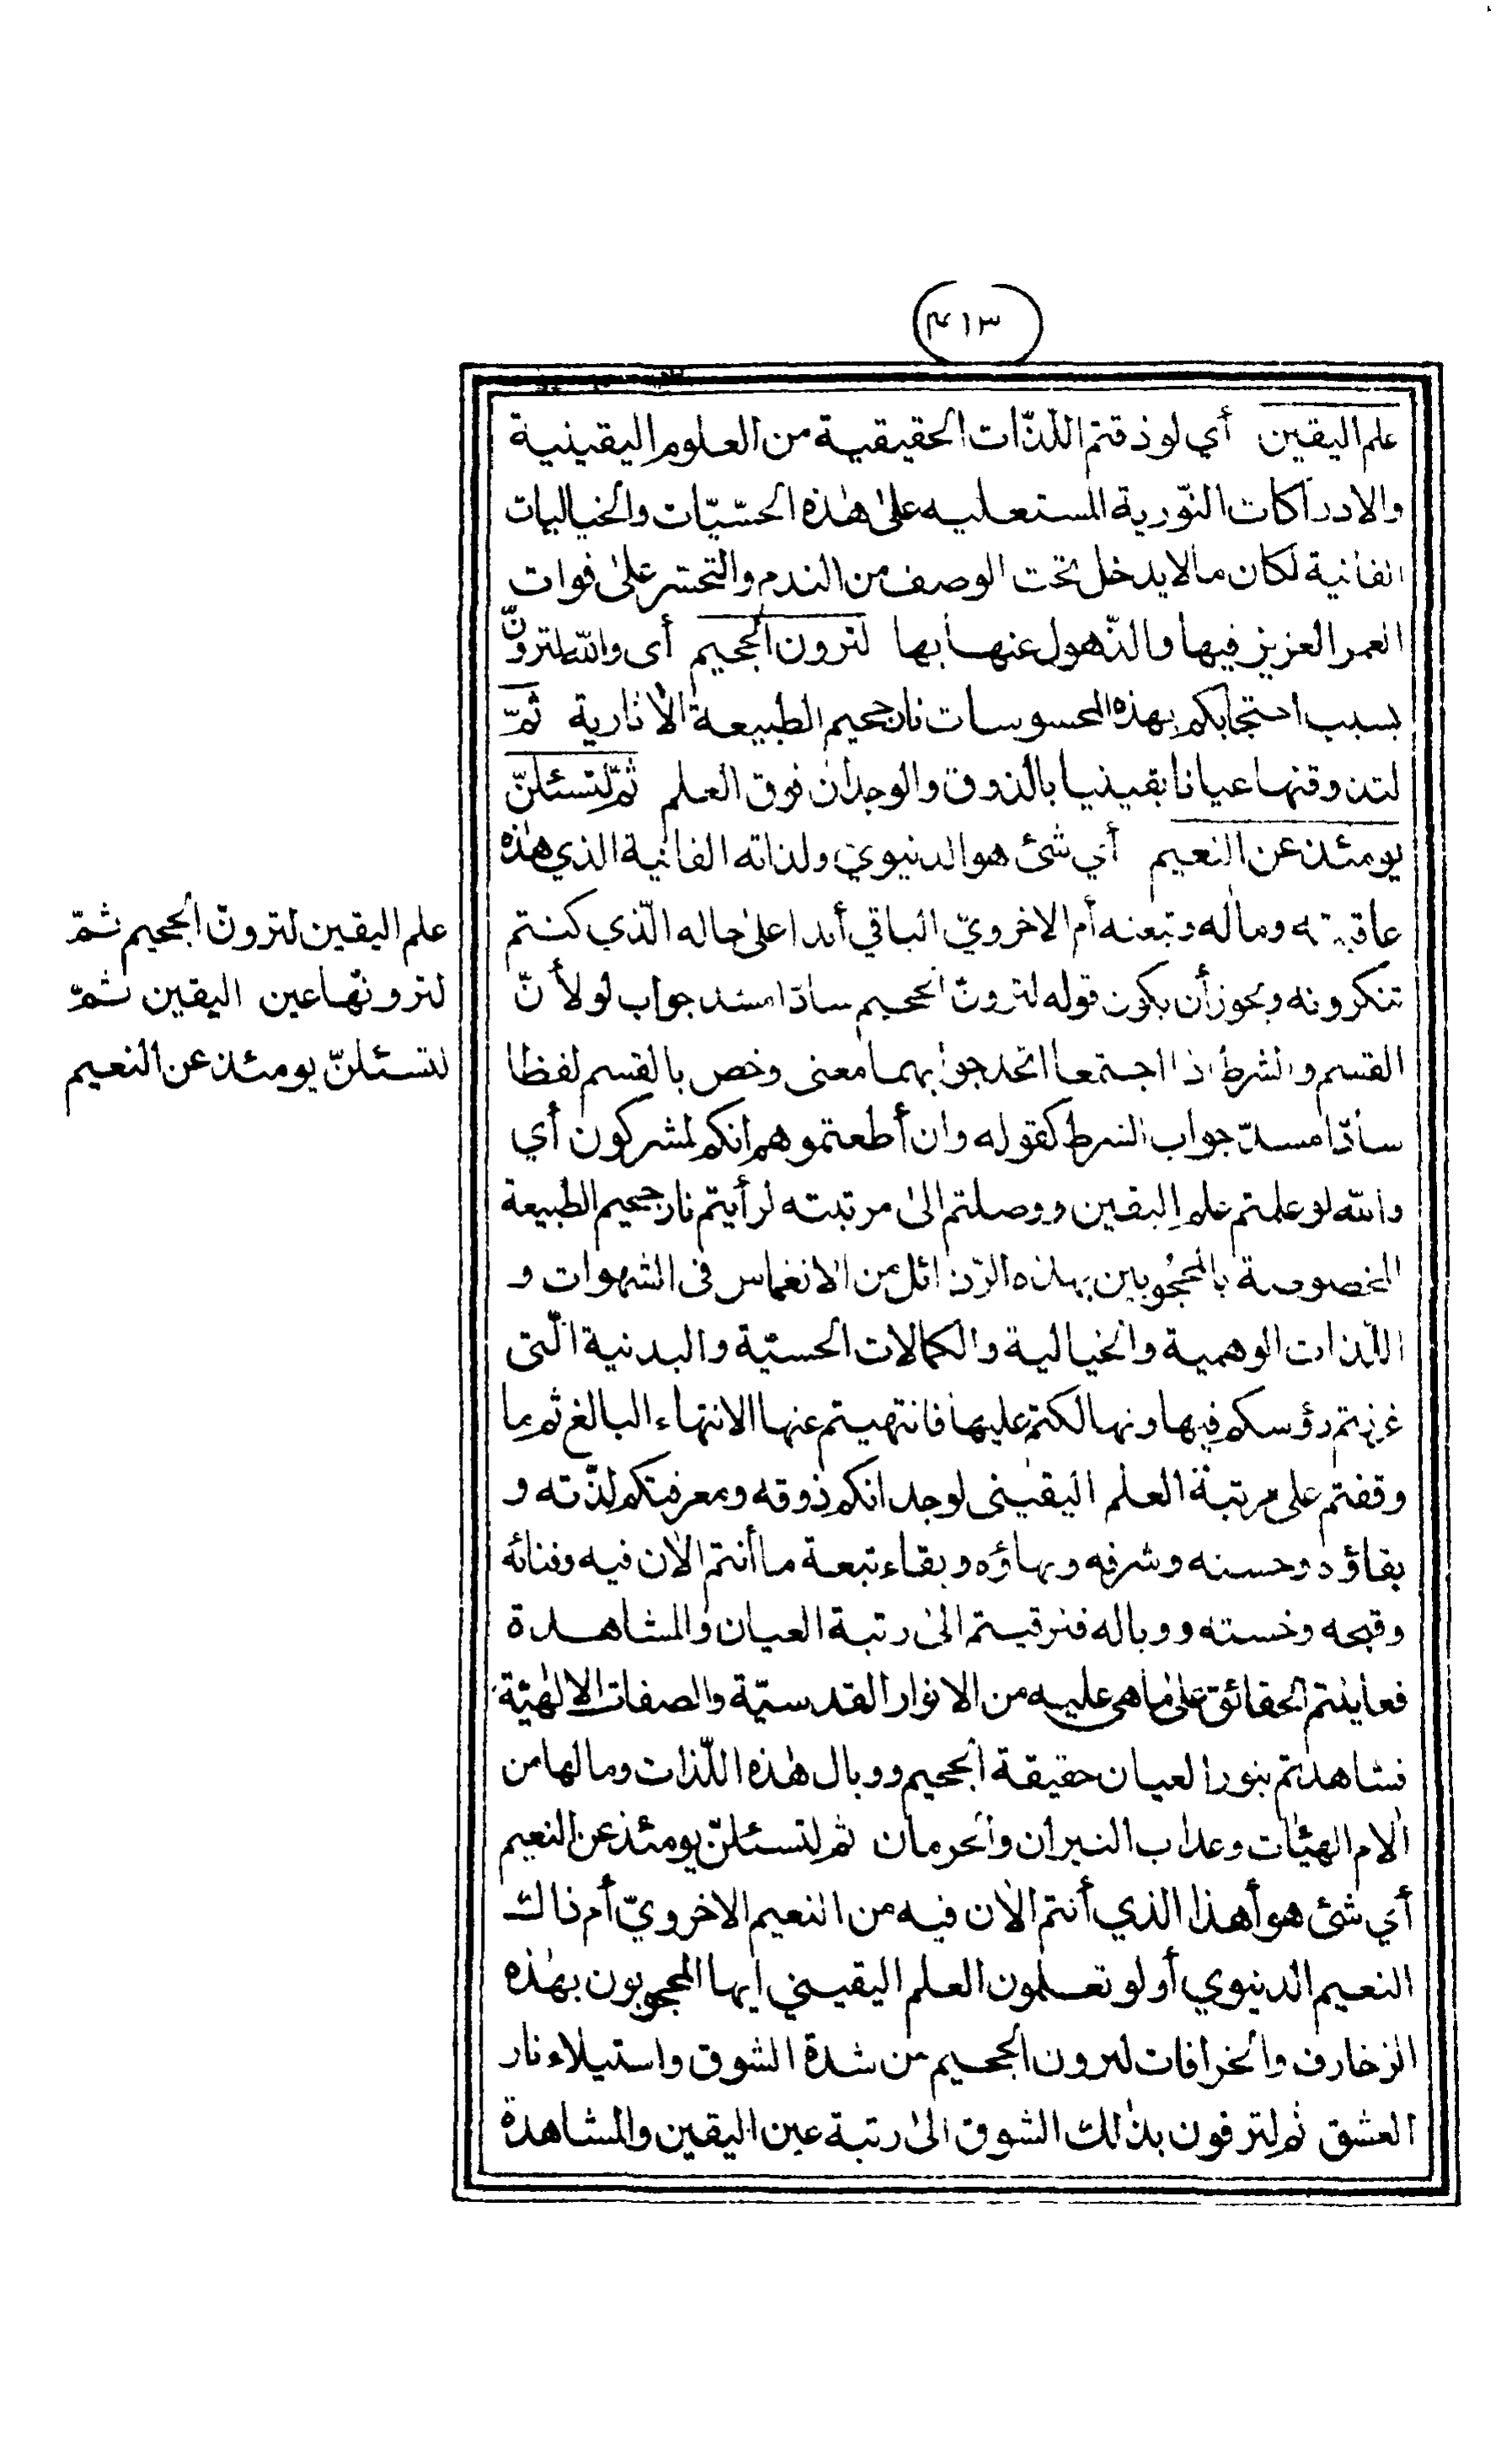 ٤١٣
علم اليقين أي لو ذقتم اللذّات الحقيقية من العلوم اليقينية
والادراكات النّورية المستعليه على هٰذه الحسّيّات والخياليات
الفانية لكان مالا يدخل تحت الوصف من الندم والتحسّر على فوات
العمر العزيز فيها والذّهول عنها بها لترون الجحيم أى والله لترونّ
بسبب احتجابكم بهذه المحسوسات نار جحيم الطبيعة الآثارية ثمّ
لتذوقنها عيانا يقينيا بالذوق والوجدان فوق العلم ثمّ لتسئلنّ
يومئذ عن النعيم أي شئ هو الدنيوي ولذاته الفانية الذي هٰذه
عاقبته ومآله وتبعته أم الاخرويّ الباقي أبدا على حاله الّذي كنتم
تنكرونه ويجوز أن يكون قوله لترونّ الجحيم سادّا مسد جواب لو لأنّ
القسم والشرط اذا اجتمعا اتحد جوابهما معنى وخص بالقسم لفظا
سادّا مسدّ جواب الشرط كقوله وان أطعتموهم انكم لمشركون أي
والله لو علمتم علم اليقين ووصلتم الىٰ مرتبته لرأيتم نار جحيم الطبيعة
المخصوصة بالمحجُوبين بهذه الرّذائل من الانغماس فى الشهوات و
اللّذات الوهمية والخيالية والكمالات الحسيّة والبدنية الّتى
غرزتم رؤسكم فيها وتهالكتم عليها فانتهيتم عنها الانتهاء البالغ ثم ما
وقفتم على مرتبة العلم اليقينى لوجدانكم ذوقه ومعرفتكم لذّته و
بقاؤه وحسنه وشرفه وبهاؤه وبقاء تبعة ما أنتم الآن فيه وفنائه
وقبحه وخسته ووباله فترقيتم الىٰ رتبة العيان والمشاهدة
فعاينتم الحقائق على ماهى عليه من الانوار القدسيّة والصفات الالٰهيّة
فشاهدتم بنور العيان حقيقة الجحيم ووبال هٰذه اللّذات ومالها من
آلام الهيٰات وعذاب النيران والحرمان ثم لتسئلنّ يومئذ عن النعيم
أي شئ هو أهذا الذي أنتم الآن فيه من النعيم الاخرويّ أم ذاك
النعيم الدنيوي أو لو تعلمون العلم اليقيني ايها المحجوبون بهٰذه
الزخارف والخرافات لترون الجحيم من شدة الشوق واستيلاء نار
العشق ثم لترقون بذٰلك الشوق الىٰ رتبة عين اليقين والمشاهدة
علم اليقين لترونّ الجحيم ثمّ
لترونّها عين اليقين ثمّ
لتسئلنّ يومئذ عن النعيم